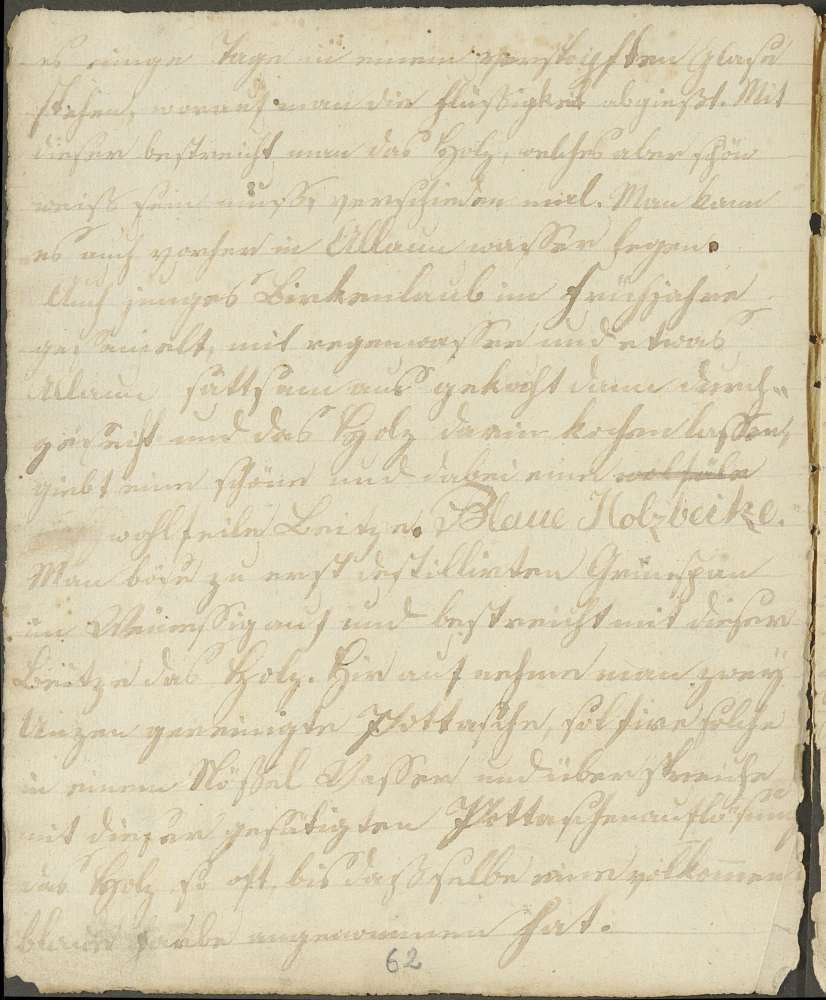 es einige Tage in einem verstopften Glase
stehen, worauf man die Flüssigkeit abgießt. Mit
dieser bestreicht man das Holz, welches aber schön
weiß sein muß, verschieden mal. Man kann
es auch vorher in Allaun wasser legen.
Auch junges Birkenlaub im Frühjahre
gesamelt, mit regenwasser und etwas
Allaun sattsam aus gekocht dann durch-
geseiht und das Holz darin kochen lassen,
giebt eine schöne und dabei eine wolfeile
wohlfeile Beitze. Blaue Holzbeitze.
Man löse zu erst destillirten Grünspan
in Weinessig auf und bestreicht mit dieser
Beitze das Holz. Hir auf nehme man zwey
Unzen gereinigte Pottasche, solfire solche
in einem Nößel Wasser und über streiche
mit dieser gesätigten Pottaschenauflösung
das Holz so oft bis daß selbe eine volkomen
blaue farbe angenommen hat.
62